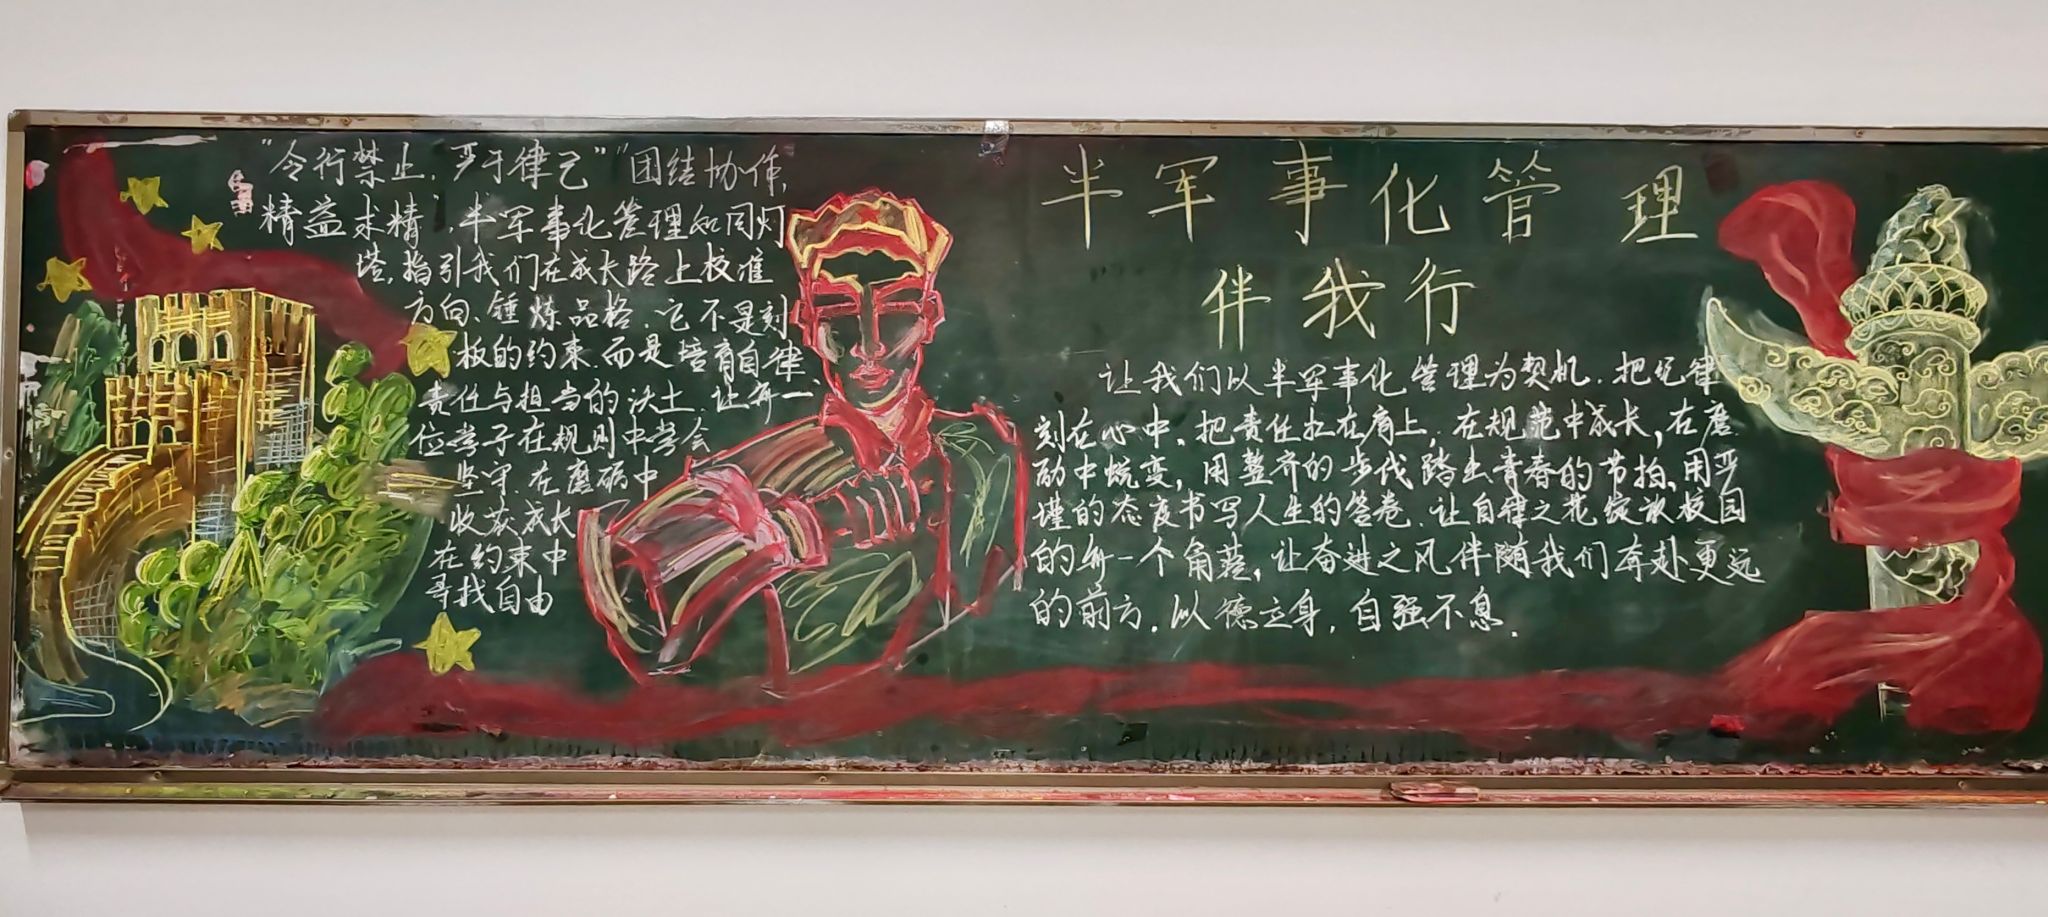 "令行禁止,严于律己""团结协作,
精益求精",半军事化管理如同灯
塔,指引我们在成长路上校准
方向、锤炼品格.它不是刻
板的约束.而是培育自律
责任与担当的沃土.让每一
位学子在规则中学会
坚守.在磨砺中
收获成长
在约束中
寻找自由
半军事化管理
伴我行
让我们以半军事化管理为契机.把纪律
刻在心中,把责任扛在肩上,在规范中成长,在磨
励中蜕变,用整齐的步伐踏出青春的节拍,用严
谨的态度书写人生的答卷.让自律之花绽放校园
的每一个角落,让奋进之风伴随我们奔赴更远
的前方.以德立身,自强不息.